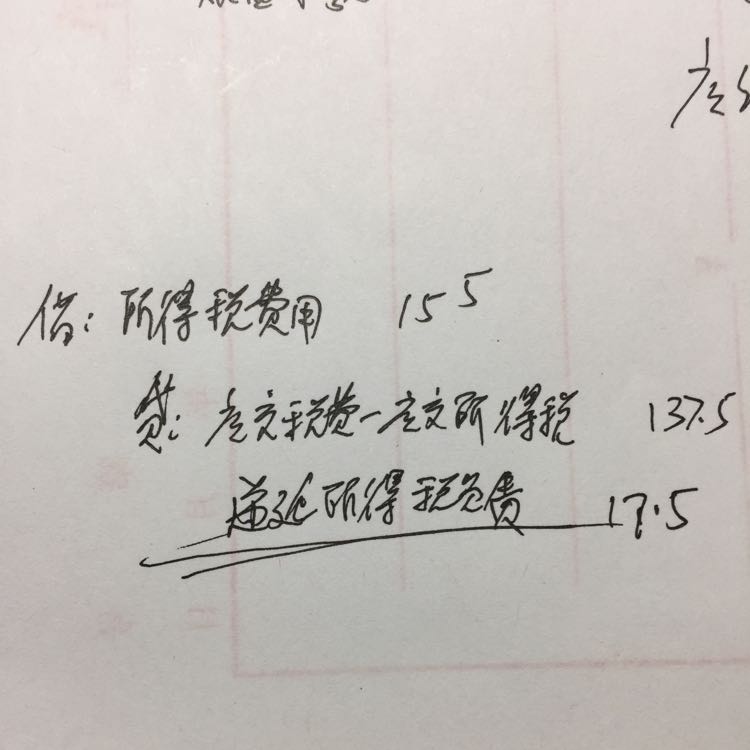 借：所得税费用 155
贷：应交税费一应交所得税 137.5
递延所得税负债 17.5